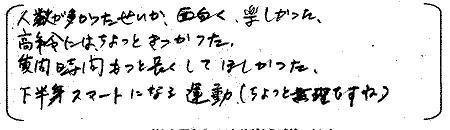 人数が多かったせいか、面白く、楽しかった、
高令にはちょっときつかった。
質問時間もっと長くしてほしかった。
下半身スマートになる運動(ちょっと無理ですね)